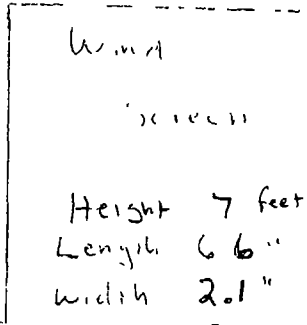 Wind
screen
Height 7 feet
Length 6 6 "
width 2.1 "